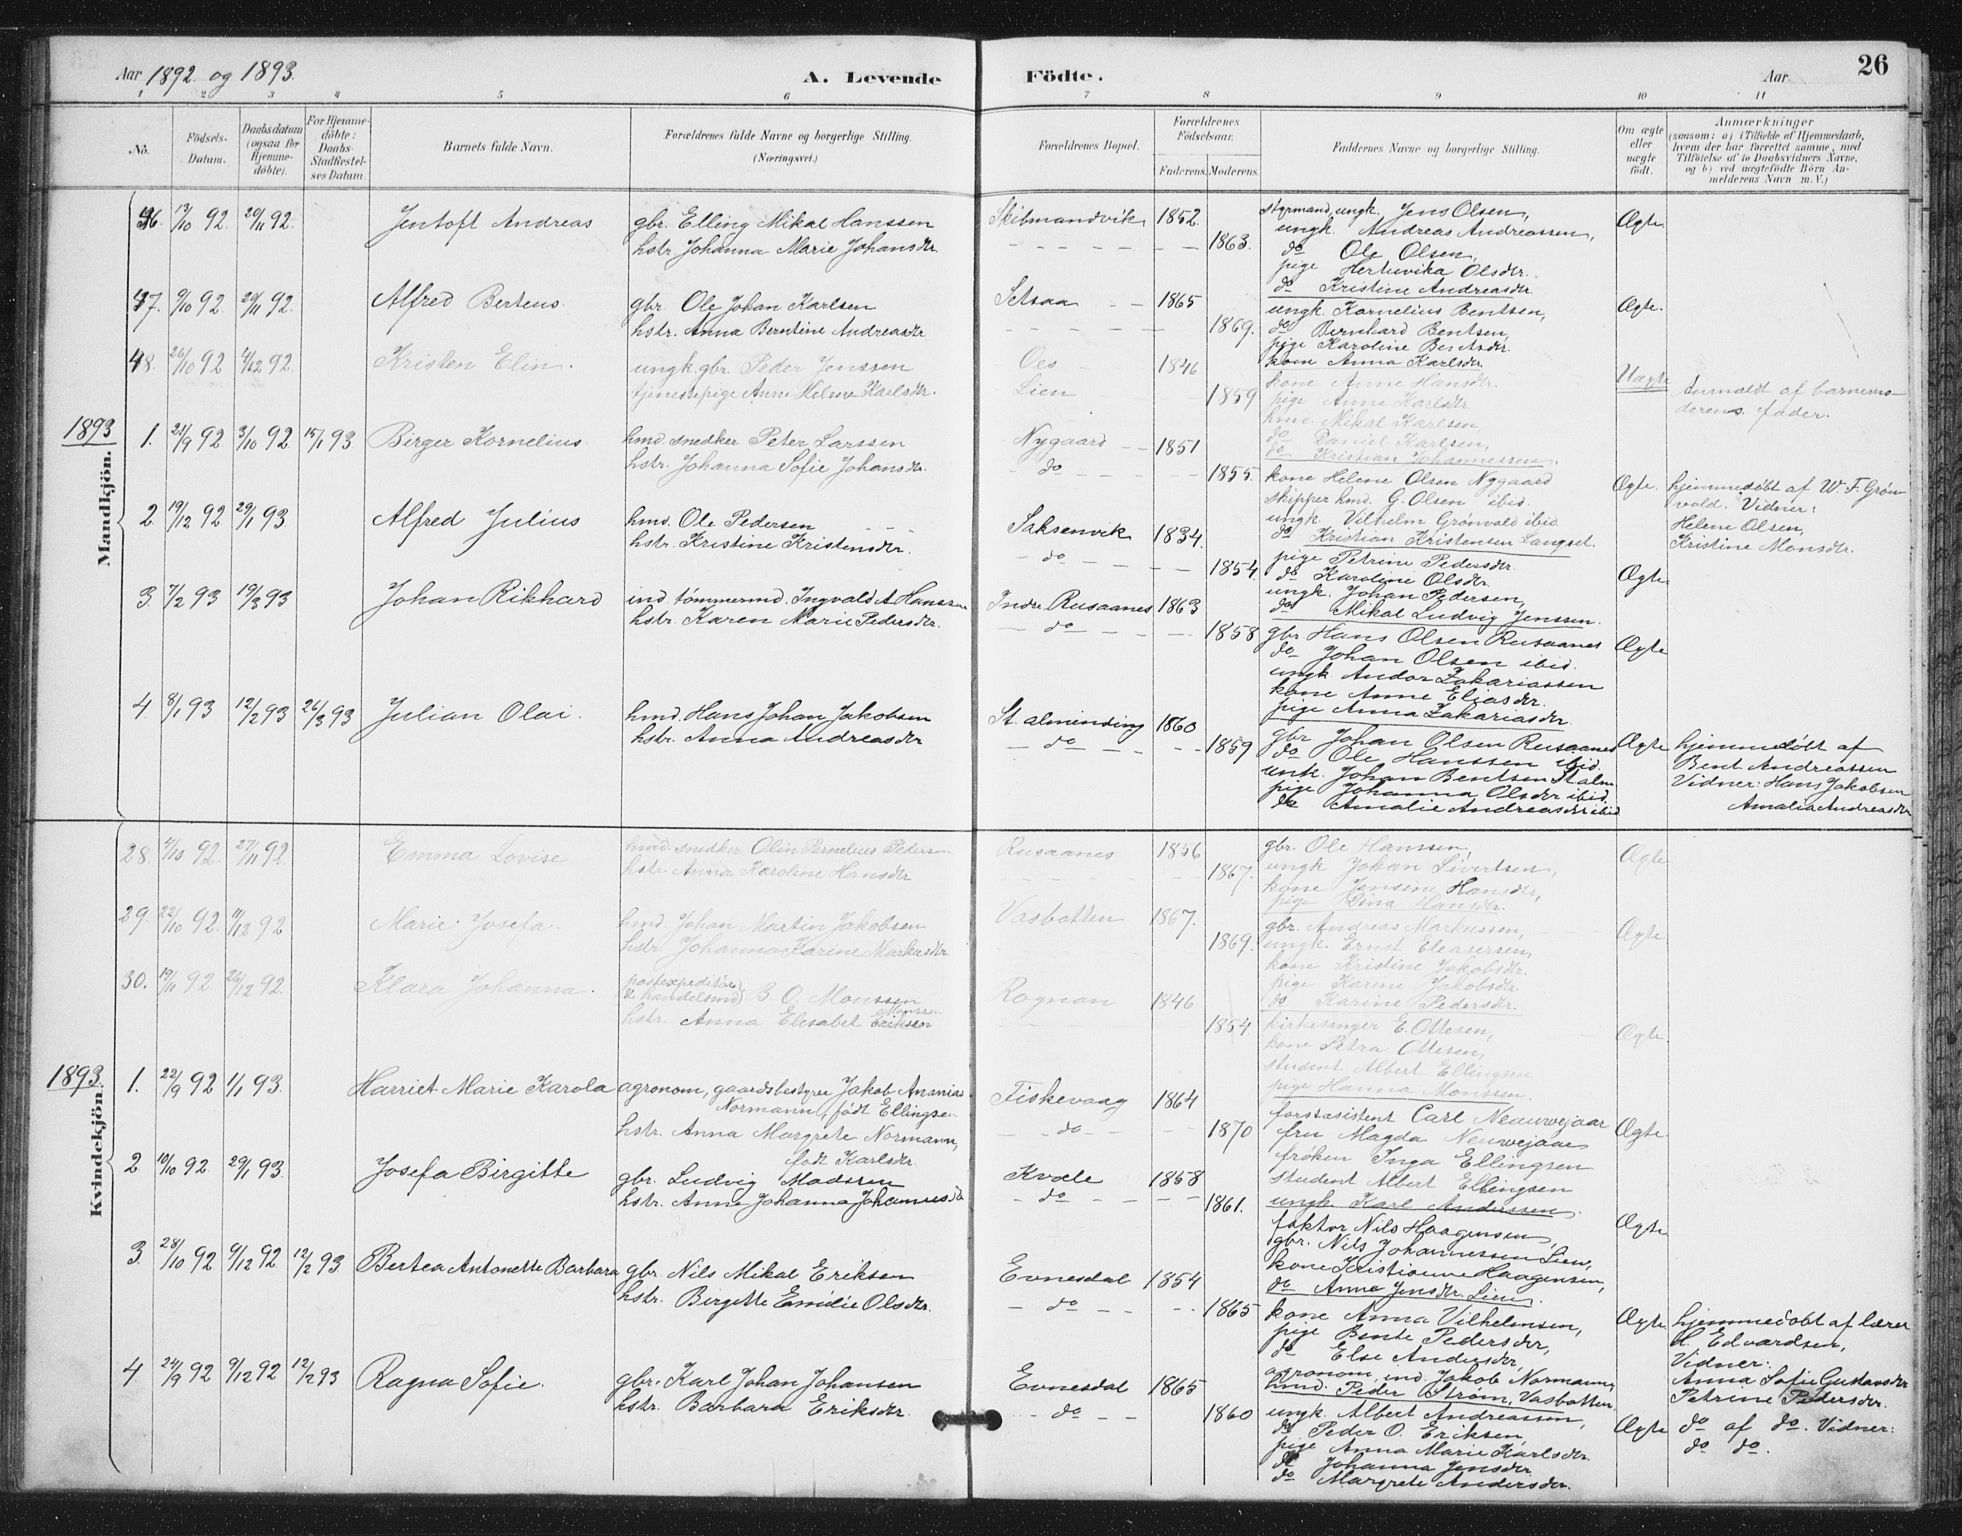 Aar 1892 og 1893. A. Levende Födte. Aar 26
1 2 3 4 5 6 7 8 9 10 11
No. Födsels-Datum. Daabsdatum (ogsaa för Hjemmedöbte). For Hjemmedöbte: Daabs-Stadfæstelses Datum. Barnets fulde Navn. Forældrenes fulde Navne og borgerlige Stilling. (Næringsvei.) Forældrenes Bopæl. Forældrenes Födselsaar. Faderens. Moderens. Faddernes Navne og borgerlige Stilling. Om ægte eller uægte födt. Anmærkninger (saasom: a) i Tilfælde af Hjemmedaab, hvem der har forrettet samme, med Tilföielse af to Daabsvidners Navne, og b) ved uægtefödte Börn Anmelderens Navn m. V.)
Mandkjön.
46. 13/10 92. 20/11 92. Jentoft Andreas
gbr. Elling Mikal Hanssen
hstr. Johanna Marie Johansdtr.
Skibmandvik 1852.
1863.
styrmand, ungk. Jens Olsen,
ungk. Andreas Andreassen,
do Ole Olsen,
pige Hertuvika Olsdtr.
do Kristine Andreasdtr.
Ægte
47. 9/10 92 20/11 92. Alfred Berteus.
gbr. Ole Johan Karlsen
hstr. Anna Berntine Andreasdtr
Setsaa 1865
1869.
ungk. Kornelius Bentsen,
do Bernhard Bentsen,
pige Karoline Bentsdtr.
kone Anna Karlsdtr
Ægte.
48. 26/10 92 4/12 92. Kristen Elin.
ungk. gbr. Peder Jenssen
tjenestepige Anne Helene Karlsdtr.
Oes 1846
Lien 1859
kone Anne Hansdtr.
pige Anne Karlsdtr
hmd. Mikal Karlsen,
do Daniel Karlsen,
do Kristian Johannessen.
Uægte
Anmeldt af barnemoderens fader.
1893
1. 21/9 92 3/10 92 15/1 93 Birger Kornelius.
hmd snedker Peter Larssen
hstr. Johanna Sofie Johansdtr.
Nygaard 1851
do 1855.
kone Helene Olsen Nygaard
skipper hmd. G. Olsen ibid.
ungk Vilhelm Grønvald ibid
do Kristian Kristensen Langset.
Ægte.
hjemmedøbt af W. F. Grønvald. Vidner:
Helene Olsen,
Kristine Monsdtr.
2. 19/12 92 29/1 93 Alfred Julius
hmd. Ole Pedersen
hstr. Kristine Kristensdtr.
Saksenvik 1834.
do 1854.
pige Petrine Pedersdtr.
do Karoline Olsdtr.
ungk. Johan Pedersen,
do Mikal Ludvig Jenssen.
Ægte
3. 7/2 93 19/3 93 Johan Rikhard
ind. tømmermd. Ingvald A Hanssen
hstr. Karen Marie Pedersdtr.
Indre Rusaanes 1863
do 1858
gbr Hans Olsen Rusaanes
do Johan Olsen ibid.
ungk Andor Zakariassen
kone Anne Eliasdtr.
pige Anna Zakariasdtr
Ægte
4 8/1 93 12/2 93 26/3 93 Julian Olai.
hmd. Hans Johan Jakobsen
hstr. Anna Andreasdtr
St. alminding 1860
do 1859
gbr Johan Olsen Rusaanes
do Ole Hanssen ibid.
unk. Johan Bentsen St alm
pige Johanna Olsdtr ibid.
do Amalie Andreasdtr ibid
Ægte
hjemmedøbt af
Bent Andreassen
Vidner: Hans Jakobsen
Amalia Andreasdtr
Kvindekjön.
28. 4/10 92. 27/11 92. Emma Lovise
hmd. snedker Olin Pernelius Pedersen
hstr. Anna Karoline Hansdtr
Rusaanes 1856
1867.
gbr. Ole Hanssen,
ungk Johan Sivertsen,
kone Jensine Hansdtr,
pige Dina Hansdtr.
Ægte
29. 22/10 92. 11/12 92 Marie Josefa.
hmd. Johan Martin Jakobsen
hstr. Johanna Karine Markusdtr.
Vasbotten 1867.
1869.
gbr. Andreas Markussen,
ungk. Ernst Eleasersen,
kone Kristine Jakobsdtr.
pige Karine Jakobsdtr.
do Karine Pedersdtr.
Ægte
30. 19/11 92. 26/12 92. Klara Johanna.
postexpeditør & handelsmd B. O. Monssen
hstr. Anna Elisabet Eriksen
Rognan 1846
1854
kirkesanger E. Ottesen,
kone Petra Ottesen,
student Albert Ellingsen
pige Hanna Monssen.
Ægte.
1893.
1. 22/9 92 1/1 93. Harriet Marie Karola
agronom, gaardsbestyrer Jakob Ananias
Normann, født Ellingsen
hstr. Anna Margrete Normann,
født Karlsdtr.
Fiskevaag 1864
do 1870
forstasistent Carl Neuwejaar
fru Magda Neuwejaar
frøken Inga Ellingsen
student Albert Ellingsen
ungk. Karl Anderssen.
Ægte.
2 10/10 92. 29/1 93. Josefa Birgitte
gbr. Ludvig Madssen
hstr. Anne Johanna Johannesdtr
Kvæle 1858
do 1861.
faktor Nils Haagensen,
gbr. Nils Johannessen Lien,
kone Kristianne Haagensen,
do Anne Jensdtr. Lien.
Ægte
3. 28/10 92. 9/12 92 12/2 93. Bertea Antonette Barbara
gbr Nils Mikal Eriksen
hstr. Birgitte Emilie Olsdtr.
Evnesdal 1854
do 1865
kone Anna Vilhelmsen,
pige Bente Pedersdtr,
do Else Andersdtr,
agronom ind. Jakob Normann,
hmd. Peder Strøm, Vasbotten.
Ægte
hjemmedøbt af lærer
H. Edvardsen,
Vidner:
Anna Sofie Gustavsdtr
Petrine Pedersdtr.
4 24/9 92 9/12 92 12/2 93 Ragna Sofie.
gbr. Karl Johan Johansen
hstr. Barbara Eriksdtr.
Evnesdal 1865
do 1860
ungk. Albert Andreassen,
do Peder O. Eriksen,
pige Anna Marie Karlsdtr.
do Johanna Jensdtr
do Margrete Andersdtr.
Ægte
do af do. Vidner:
do do.